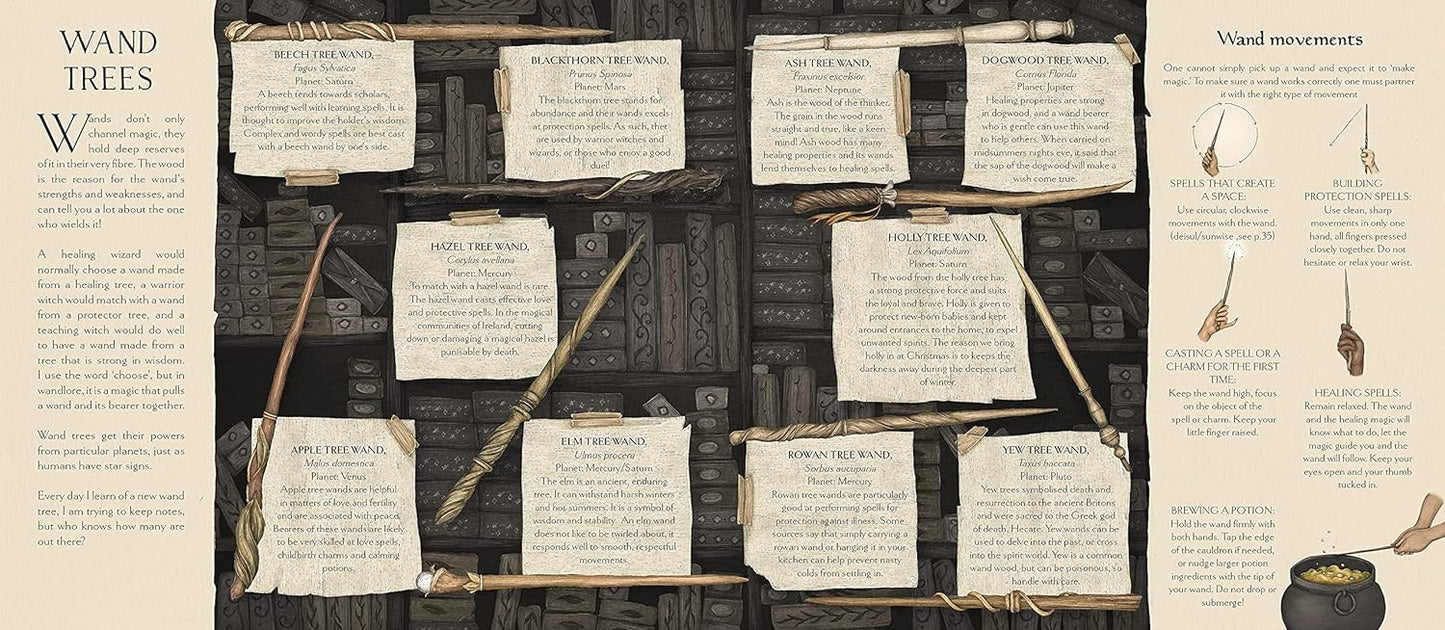 WAND
TREES
Wands don't only
channel magic, they
hold deep reserves
of it in their very fibre. The wood
is the reason for the wand's
strengths and weaknesses, and
can tell you a lot about the one
who wields it!
A healing wizard would
normally choose a wand made
from a healing tree, a warrior
witch would match with a wand
from a protector tree, and a
teaching witch would do well
to have a wand made from a
tree that is strong in wisdom.
I use the word 'choose', but in
wandlore, it is a magic that pulls
a wand and its bearer together.
Wand trees get their powers
from particular planets, just as
humans have star signs.
Every day I learn of a new wand
tree, I am trying to keep notes,
but who knows how many are
out there?
BEECH TREE WAND,
Fagus Sylvatica
Planet: Saturn
A beech tends towards scholars,
performing well with learning spells. It is
thought to improve the holder's wisdom.
Complex and wordy spells are best cast
with a beech wand by one's side.
BLACKTHORN TREE WAND,
Prunus Spinosa
Planet: Mars
The blackthorn tree stands for
abundance and their wands excels
at protection spells. As such, they
are used by warrior witches and
wizards, or those who enjoy a good
duel!
ASH TREE WAND,
Fraxinus excelsior
Planet: Neptune
Ash is the wood of the thinker.
The grain in the wood runs
straight and true, like a keen
mind! Ash wood has many
healing properties and its wands
lend themselves to healing spells.
DOGWOOD TREE WAND,
Cornus Florida
Planet: Jupiter
Healing properties are strong
in dogwood, and a wand bearer
who is gentle can use this wand
to help others. When carried on
midsummers nights eve, it said that
the sap of the dogwood will make a
wish come true.
HAZEL TREE WAND,
Corylus avellana
Planet: Mercury
To match with a hazel wand is rare.
The hazel wand casts effective love
and protective spells. In the magical
communities of Ireland, cutting
down or damaging a magical hazel is
punisable by death.
HOLLY TREE WAND,
Lex Aquifolium
Planet: Saturn
The wood from the holly tree has
a strong protective force and suits
the loyal and brave. Holly is given to
protect new-born babies and kept
around entrances to the home, to expel
unwanted spirits. The reason we bring
holly in at Christmas is to keeps the
darkness away during the deepest part
of winter.
APPLE TREE WAND,
Malus domestica
Planet: Venus
Apple tree wands are helpful
in matters of love and fertility
and are associated with peace.
Bearers of these wands are likely
to be very skilled at love spells,
childbirth charms and calming
potions.
ELM TREE WAND,
Ulmus procera
Planet: Mercury/Saturn
The elm is an ancient, enduring
tree. It can withstand harsh winters
and hot summers. It is a symbol of
wisdom and stability. An elm wand
does not like to be twirled about, it
responds well to smooth, respectful
movements.
ROWAN TREE WAND,
Sorbus aucuparia
Planet: Mercury
Rowan tree wands are particularly
good at performing spells for
protection against illness. Some
sources say that simply carrying a
rowan wand or hanging it in your
kitchen can help prevent nasty
colds from settling in.
YEW TREE WAND,
Taxus baccata
Planet: Pluto
Yew trees symbolised death and
resurrection to the ancient Britons
and were sacred to the Greek god
of death, Hecate. Yew wands can be
used to delve into the past, or cross
into the spirit world. Yew is a common
wand wood, but can be poisonous, so
handle with care.
Wand movements
One cannot simply pick up a wand and expect it to 'make
magic.' To make sure a wand works correctly one must partner
it with the right type of movement
SPELLS THAT CREATE
A SPACE:
Use circular, clockwise
movements with the wand.
(deisul/sunwise ,see p.35)
BUILDING
PROTECTION SPELLS:
Use clean, sharp
movements in only one
hand, all fingers pressed
closely together. Do not
hesitate or relax your wrist.
CASTING A SPELL OR A
CHARM FOR THE FIRST
TIME:
Keep the wand high, focus
on the object of the
spell or charm. Keep your
little finger raised.
HEALING SPELLS:
Remain relaxed. The wand
and the healing magic will
know what to do, let the
magic guide you and the
wand will follow. Keep your
eyes open and your thumb
tucked in.
BREWING A POTION:
Hold the wand firmly with
both hands. Tap the edge
of the cauldron if needed,
or nudge larger potion
ingredients with the tip of
your wand. Do not drop or
submerge!